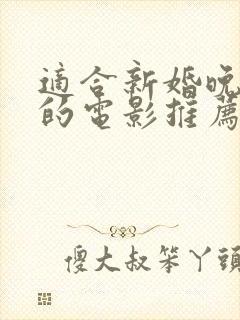 適合新婚晚
的電影推薦
傻大叔笨丫頭